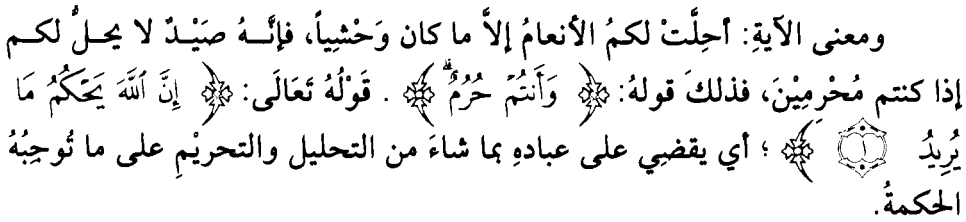 ومعنى الآيةِ: أُحِلَّتْ لكمُ الأنعامُ إلاَّ ما كان وَحْشِياً، فإنَّـهُ صَيْـدٌ لا يحلُّ لكـم
إذا كنتم مُحْرِمِيْنَ، فذلكَ قولهُ: ﴿ وَأَنتُمْ حُرُمٌۗ ﴾ . قَوْلُهُ تَعَالَى: ﴿ إِنَّ ٱللَّهَ يَحْكُمُ مَا
يُرِيدُ ١ ﴾ ؛ أي يقضِي على عبادهِ بما شاءَ من التحليل والتحريْمِ على ما تُوجِبُهُ
الحكمةُ.